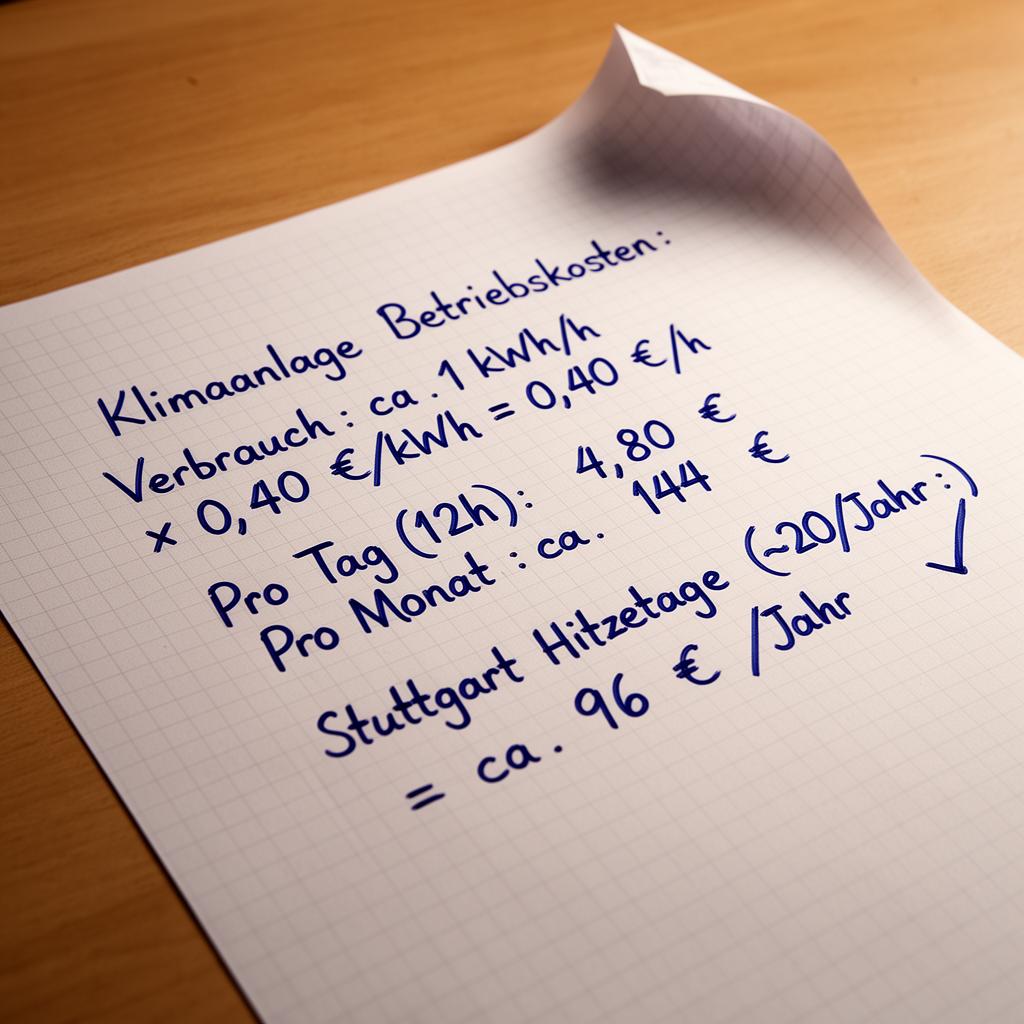 Klimaanlage Betriebskosten:
Verbrauch: ca. 1 kWh/h
x 0,40 €/kWh = 0,40 €/h
Pro Tag (12h): 4,80 €
Pro Monat: ca. 144 €
Stuttgart Hitzetage (~20/Jahr:)
= ca. 96 € /Jahr